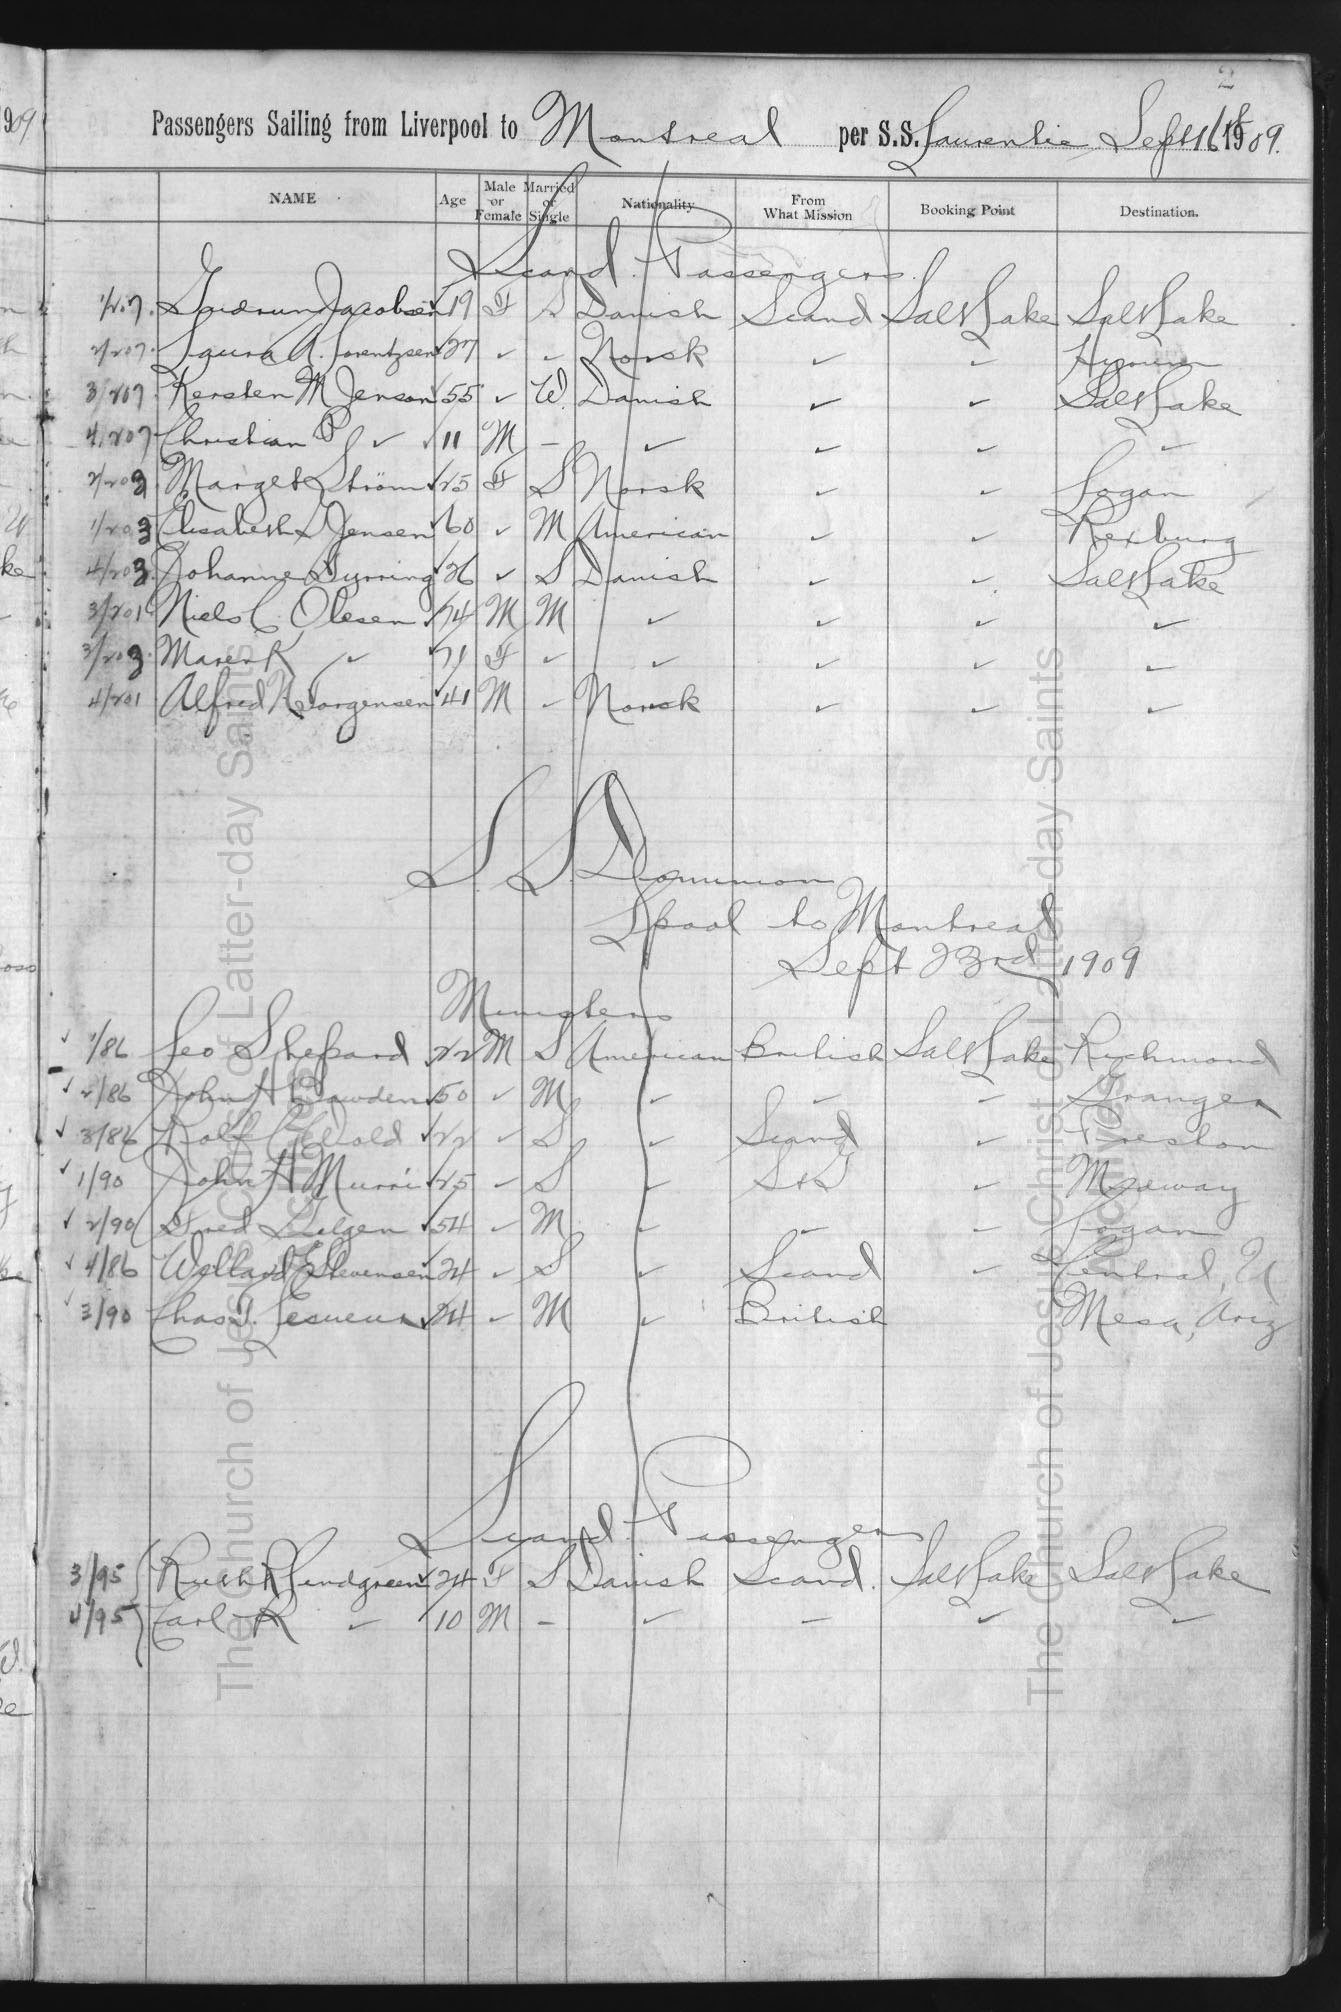 2
Passengers Sailing from Liverpool to Montreal per S.S. Laurentic Sept 16/18 1909.
NAME Age Male or Female Married or Single Nationality From What Mission Booking Point Destination.
Scand. Passengers.
1/207. Gudrun Jacobsen ✓ 19 F S Danish Scand Salt Lake Salt Lake
2/207. Laura A. Lorentzsen ✓ 27 ✓ ✓ Norsk ✓ ✓ Hyrum
3/207. Kersten M Jenson ✓ 55 ✓ W. Danish ✓ ✓ Salt Lake
4/207 Christian P ✓ ✓ 11 M – ✓ ✓ ✓ ✓
2/203 Marget Ström ✓ 25 F S Norsk ✓ ✓ Logan
1/203 Elisabeth Jensen ✓ 60 ✓ M American ✓ ✓ Rexburg
4/203. Johanne Dyrring ✓ 26 ✓ S Danish ✓ ✓ Salt Lake
3/201 Niels C. Olesen ✓ 74 M M ✓ ✓ ✓ ✓
3/203. Maren K ✓ 71 F ✓ ✓ ✓ ✓ ✓
4/201 Alfred N Jorgensen ✓ 41 M ✓ Norsk ✓ ✓ ✓
S. S. Dominion
Lpool to Montreal
Sept 23rd 1909
Ministers
✓ 1/86 Geo Shepard ✓ 22 M S American British Salt Lake Richmond
✓ 2/86 John H Bawden ✓ 50 ✓ M ✓ ✓ ✓ Granger
✓ 3/86 Rolf ✓ 22 ✓ S ✓ Scand ✓ Preston
✓ 1/90 John H Murri ✓ 25 ✓ S ✓ S & G ✓ Midway
✓ 2/90 Fred Gelgen ✓ 54 ✓ M ✓ ✓ ✓ Logan
✓ 4/86 Willard E Stevensen ✓ 24 ✓ S ✓ Scand ✓ Central, U
✓ 3/90 Chas T. Lesueur ✓ 24 ✓ M ✓ British Mesa, Ariz
Scand. Passengers
3/95 Ruth R Lindgreen ✓ 24 F S Danish Scand. Salt Lake Salt Lake
4/95 Carl R ✓ 10 M – ✓ – ✓ ✓
The Church of Jesus Christ of Latter-day Saints
The Church of Jesus Christ of Latter-day Saints